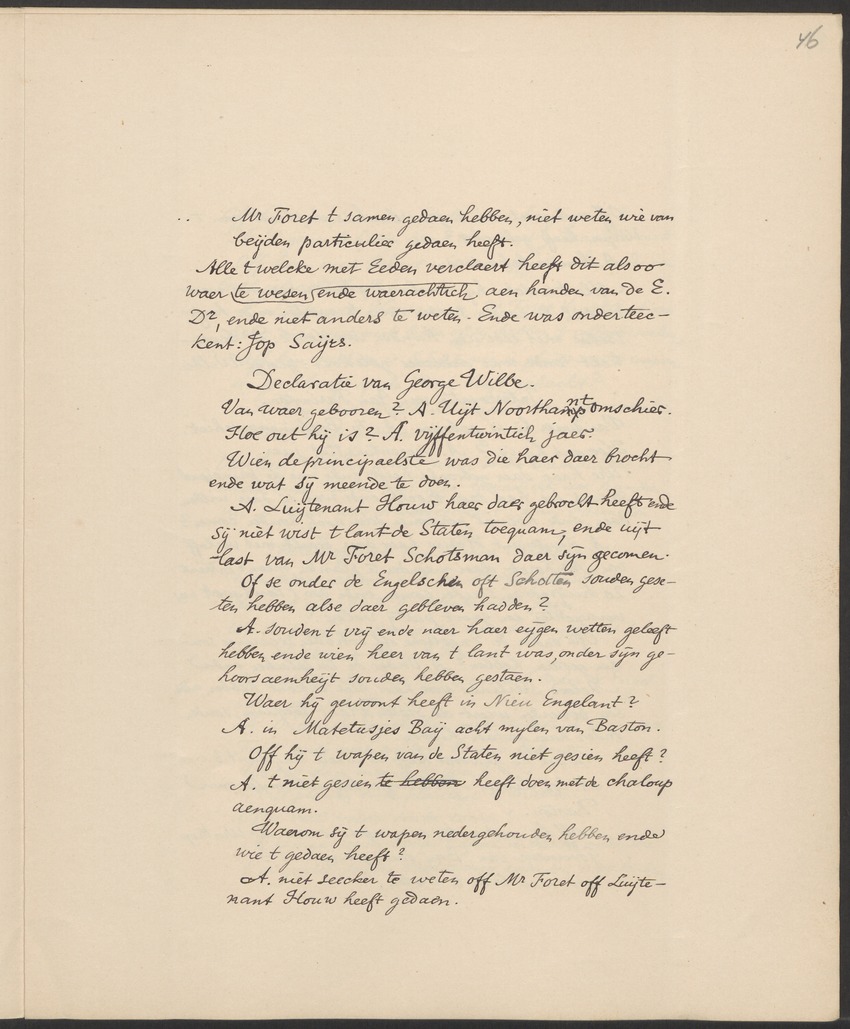 46
Mr Foret t samen gedaen hebben, niet weten wie van
beijden particulier gedaen heeft.
Alle t welcke met Eeden verclaert heeft dit alsoo
waer te wesen ende waerachtich aen handen van de E.
Dr, ende niet anders te weten. Ende was onderteec-
kent: Jop Saijrs.
Declaratie van George Wilbe.
Van waer gebooren? A. Uijt Noorthamntomschier.
Hoe out hij is? A. vijffentwintich jaer.
Wien de principaelste was die haer daer brocht
ende wat sij meende te doen.
A. Luijtenant Houw haer daer gebrocht heeft ende
sij niet wist t lant de Staten toequam, ende uijt
last van Mr Foret Schotsman daer sijn gecomen.
Of se onder de Engelschen oft Schotten souden gese-
ten hebben alse daer gebleven hadden?
A. souden t vrij ende naer haer eijgen wetten geleeft
hebben ende wien heer van t lant was, onder sijn ge-
hoorsaemheijt souden hebben gestaen.
Waer hij gewoont heeft in Nieu Engelant?
A. in Matetusjes Baij acht mylen van Baston.
Off hij t wapen van de Staten niet gesien heeft?
A. t niet gesien te hebben heeft doen met de chaloup
aenquam.
Waerom sij t wapen nedergehouden hebben ende
wie t gedaen heeft?
A. niet seecker te weten off Mr Foret off Luijte-
nant Houw heeft gedaen.